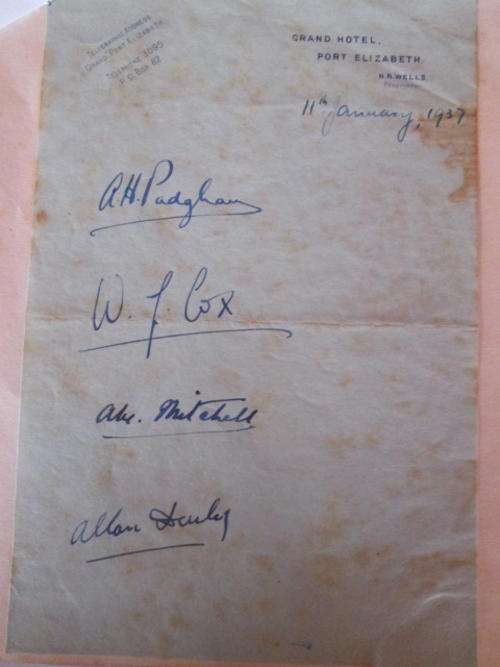 TELEGRAPHIC ADDRESS
GRAND, PORT ELIZABETH
TELEPHONE 3095
P. O. BOX 82
GRAND HOTEL,
PORT ELIZABETH.
N. R. WELLS
PROPRIETOR
11th January, 1937
A.H. Padgham
W. J. Cox
Abe. Mitchell
Allan